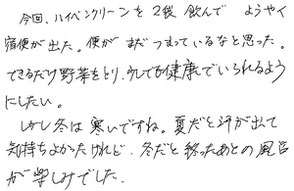 今回、ハイペンクリーンを2袋飲んで ようやく
宿便が出た。便がまだつまっているなと思った。
できるだけ野菜をとり、少しでも健康でいられるよう
にしたい。
しかし冬は寒いですね。夏だと汗が出て
気持ちよかったけれど、冬だと終ったあとの風呂
が楽しみでした。